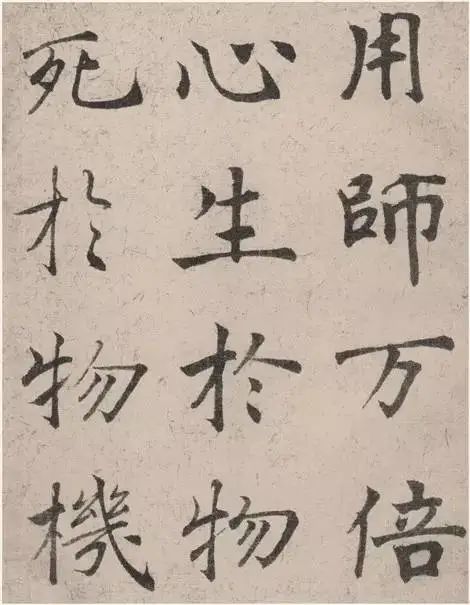 用師万倍
心生於物
死於物機